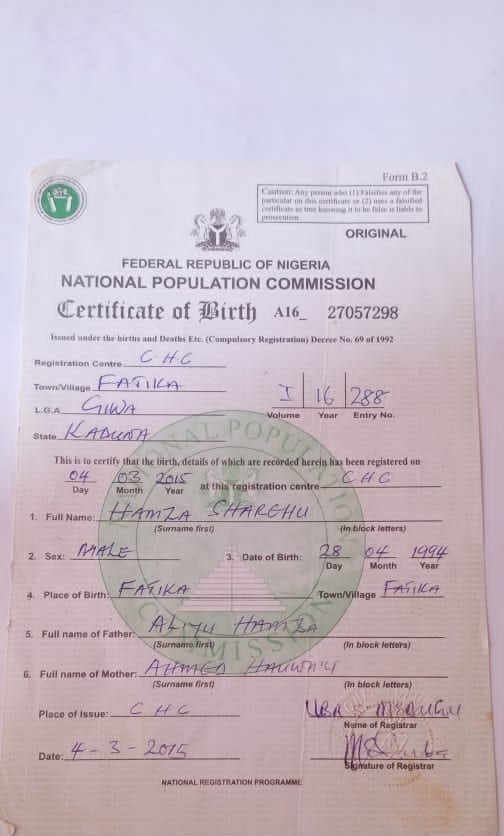 Form B.2
Caution: Any person who (1) Falsifies any of the
particular on this certificate or (2) uses a falsified
certificate as true knowing it to be false is liable to
prosecution
ORIGINAL
FEDERAL REPUBLIC OF NIGERIA
NATIONAL POPULATION COMMISSION
Certificate of Birth A16_ 27057298
Issued under the births and Deaths Etc. (Compulsory Registration) Decree No. 69 of 1992
Registration Centre CHC
Town/Village FATIKA
L.G.A GIWA
State KADUNA
I 16 288
Volume Year Entry No.
This is to certify that the birth, details of which are recorded herein has been registered on
04 03 2015 at this registration centre CHC
Day Month Year
1. Full Name: HAMZA SHAREHU
(Surname first) (In block letters)
2. Sex: MALE 3. Date of Birth: 28 04 1994
Day Month Year
4. Place of Birth: FATIKA Town/Village FATIKA
5. Full name of Father: ALIYU HAMZA
(Surname first) (In block letters)
6. Full name of Mother: AHMED
(Surname first) (In block letters)
Place of Issue: CHC
Name of Registrar
Date: 4-3-2015
Signature of Registrar
NATIONAL REGISTRATION PROGRAMME
NATIONAL POPULATION COMMISSION